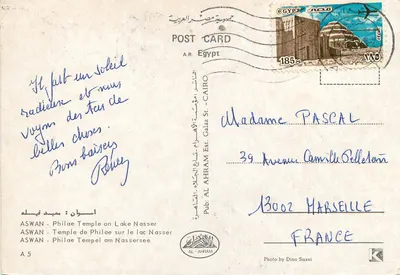 جمهورية مصر العربية
POST CARD
A.R. Egypt
EGYPT مصر
185 m
١٨٥
Il fait un soleil
radieux et nous
voyons des tas de
belles choses.
Bons baisers
Madame PASCAL
39 Avenue Camille Pelletan
13002 MARSEILLE
FRANCE
Pub. AL AHRAM Est. Galaa St. - CAIRO
ASWAN - Philae Temple on Lake Nasser
ASWAN - Temple de Philae sur le lac Nasser
ASWAN - Philae Tempel am Nassersee
A 5
AL - AHRAM
K